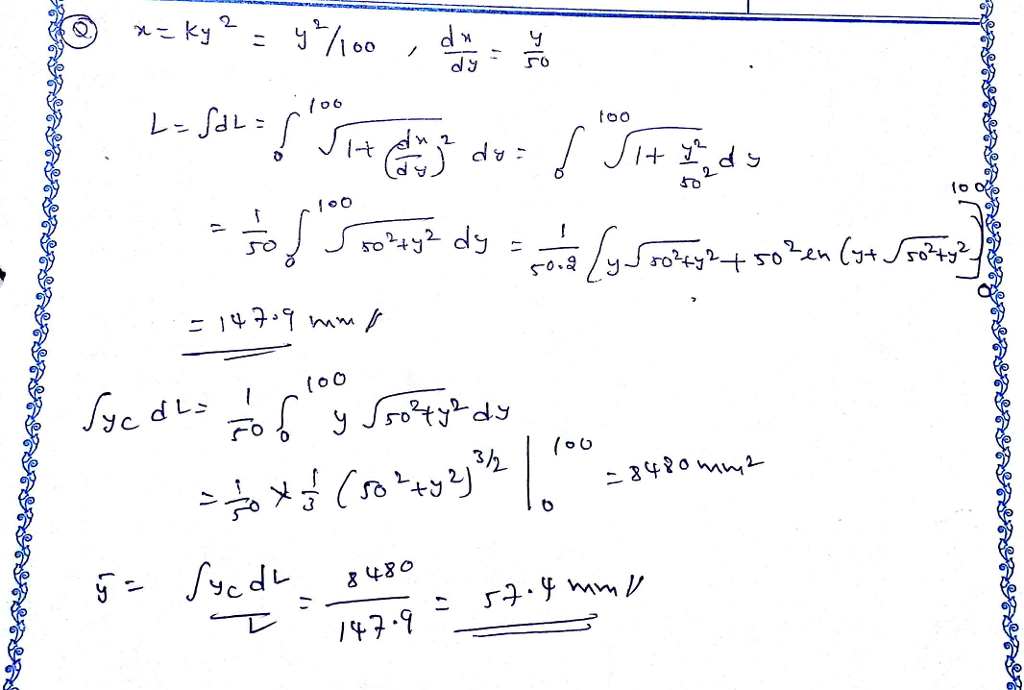 Q x = ky² = y²/100 , dx/dy = y/50
L = ∫dL = ∫₀¹⁰⁰ √(1+(dx/dy)²) dy = ∫₀¹⁰⁰ √(1+y²/50²) dy
= 1/50 ∫₀¹⁰⁰ √(50²+y²) dy = 1/50.2 [y√(50²+y²) + 50² ln (y+√(50²+y²)]₀¹⁰⁰
= 147.9 mm //
∫yc dL = 1/50 ∫₀¹⁰⁰ y √(50²+y²) dy
= 1/50 × 1/3 (50²+y²)^3/2 |₀¹⁰⁰ = 8480 mm²
ȳ = ∫yc dL / L = 8480/147.9 = 57.4 mm //